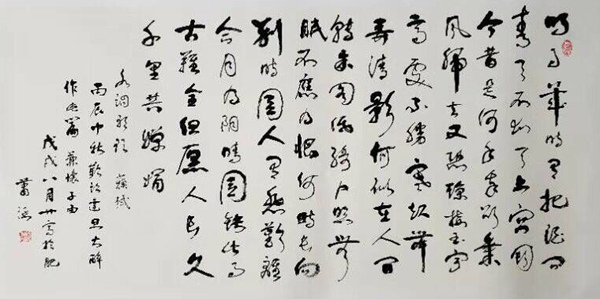 明月幾時有把酒问
青天不知天上宫阙
今昔是何年我欲乘
风归去又恐琼楼玉宇
高处不胜寒起舞
弄清影何似在人间
转朱阁低绮户照无
眠不应有恨何时长向
别时圆人有悲欢离
合月有阴晴圆缺此事
古難全但愿人长久
千里共婵娟
水调歌头 蘇軾
丙辰中秋歡飲達旦大醉
作此篇兼懷子由
戊戌八月写於肥